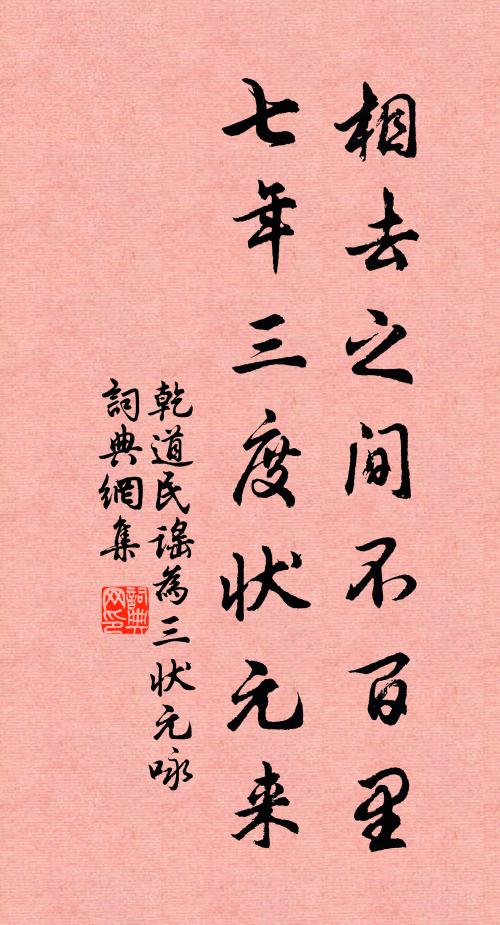 相去之间不百里
七年三度状元来
乾道民謠為三状元咏
詞典網集
詞典網印